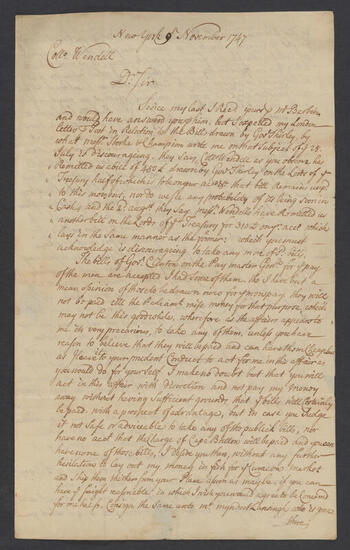 New York 9 November 1747
Collo Wendell
Dr Sir
Since my last I Recd yours
and would have answered you then, but I expected my London
letters & Just in Relation to the Bills drawn by Govr Shirley by
what messrs Storke & Champion write me on that Subject of 28
July is discouraging, they Say, Collo Wendell as you observe has
Remitted us a bill of 450£ drawn by Govr Shirley on the Lords of ye
Treasury but that bill remains unpd
to this moment, nor do we See any probability of its being Soon in
Cash, and the they Say messrs Wendells have Remitted us
another bill on the Lords of ye Treasury for acct which
lays in the Same manner as the former: which you must
acknowledge is discouraging to take any more of Sd bills,
The bills of Govr Clinton on the Pay master Genll for ye pay
of the men are accepted I had Some of them, tho I have but a
mean opinion of those to be drawn now for ye mens pay, they will
not be paid till the Parliamt raise money for that purpose, which
may not be this good while, therefore as the affair appears to
me its very precarious, to take any of them, unless you have
reason to believe that they will be paid and can have them Cheap but
as I leave to your prudent Conduct to act for me in this affair as
you would do for yourself I make no doubt but that you will
act in this affair with discretion and not pay my money
away without having Sufficient grounds that ye bills will Certainly
be paid with a prospect of advantage, but in case you Judge
it not Safe or advisable to take any of the publick bills, nor
have no acct that the Charge of Cape Britton will be paid and you can
have none of those bills, I desire you then without any further
hesitation to lay out my money in fish for ye Curacao market
and Ship them thither from your Place as Soon as may be, if you can
have ye freight reasonable in which I wish you would agree to be Concernd
for one half, Consign the Same unto Mr myndert Lansingh who is gone